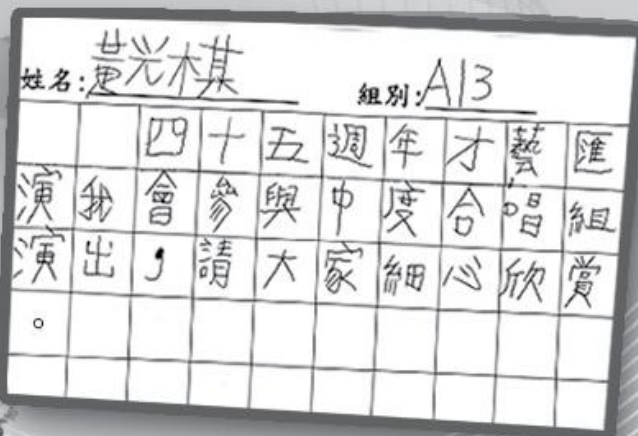 姓名:黃光棋 組別:A13
四十五週年才藝匯
演我會參與中度合唱組
演出，請大家細心欣賞
。